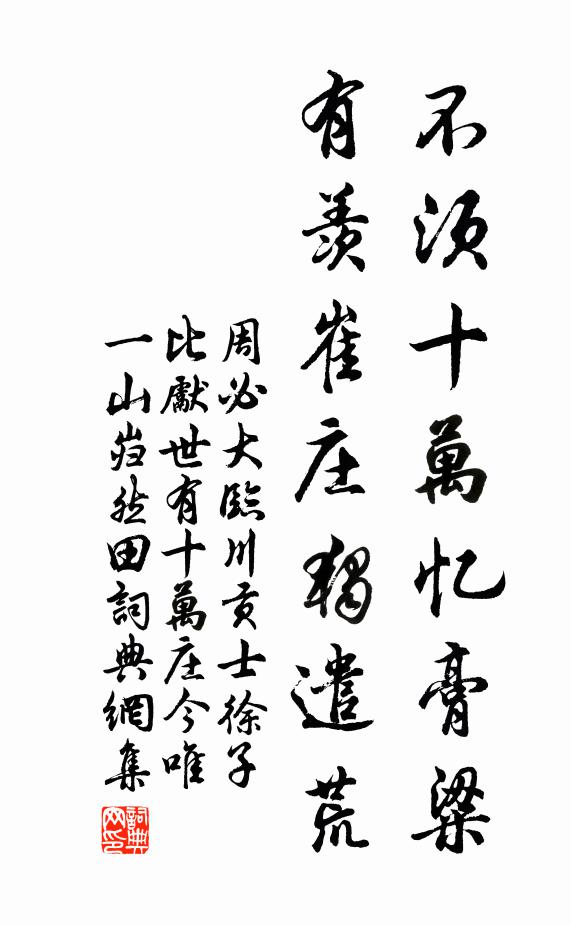 不須十萬忆膏粱
有羨崔庄獨遣荒
周必大臨川貢士徐子
比獻世有十萬庄今唯
一山岿然田詞典網集
詞典
网印